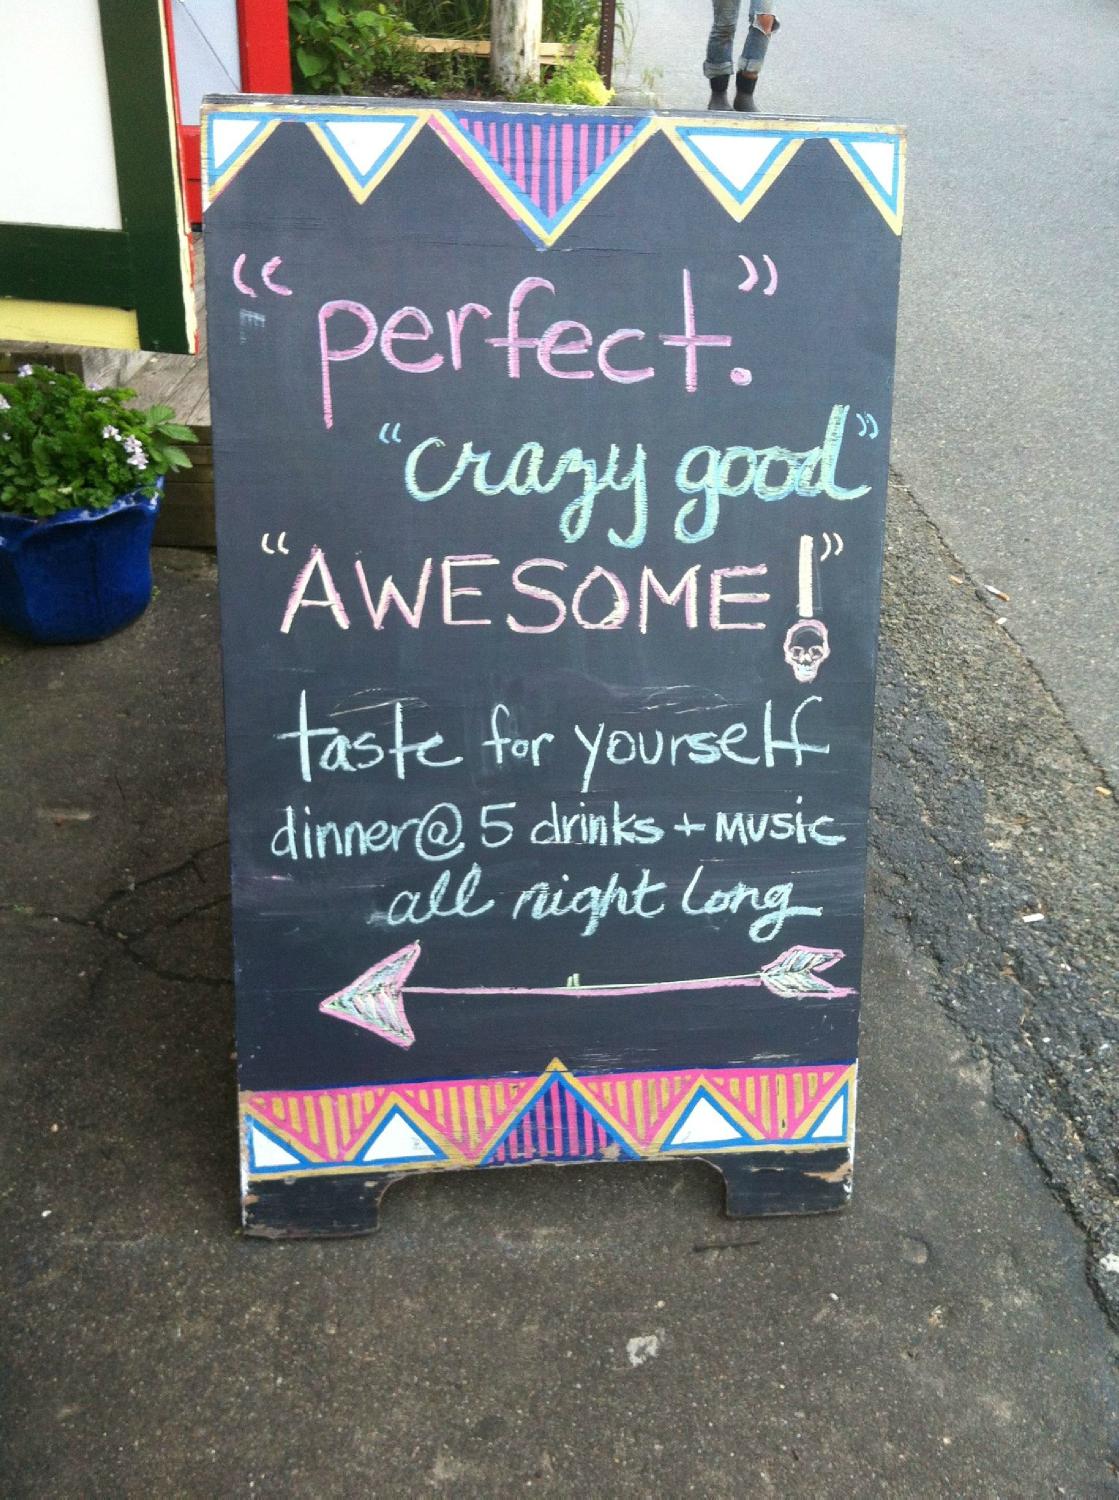 “perfect.”
“crazy good”
“AWESOME!”
taste for yourself
dinner@5 drinks + music
all night long